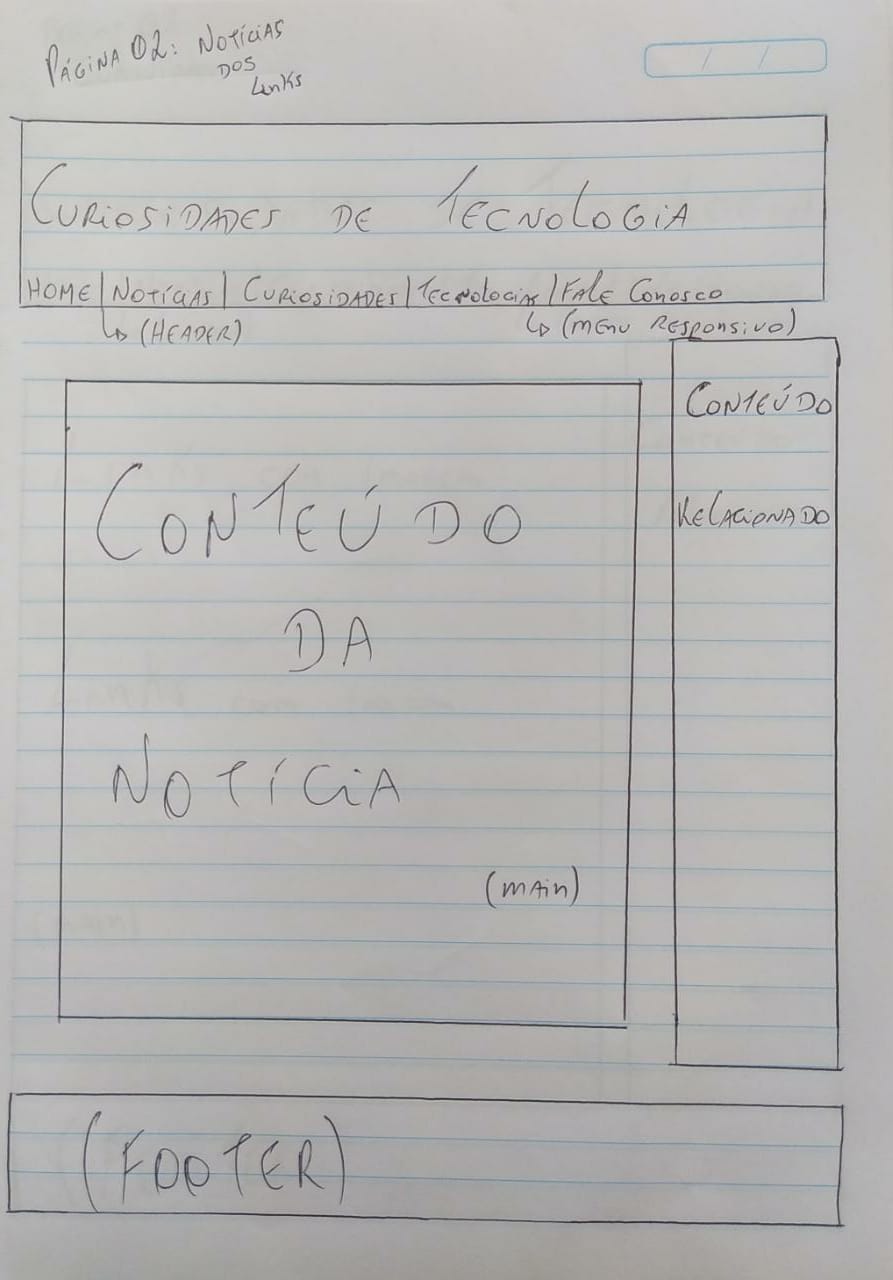 PÁGINA 02: NOTÍCIAS
DOS
Links
CURIOSIDADES DE TECNOLOGIA
HOME | NOTÍCIAS | CURIOSIDADES | TECNOLOGIAS | FALE CONOSCO
↳ (HEADER) ↳ (MENU RESPONSIVO)
CONTEÚDO
RELACIONADO
CONTEÚDO
DA
NOTÍCIA
(MAIN)
(FOOTER)